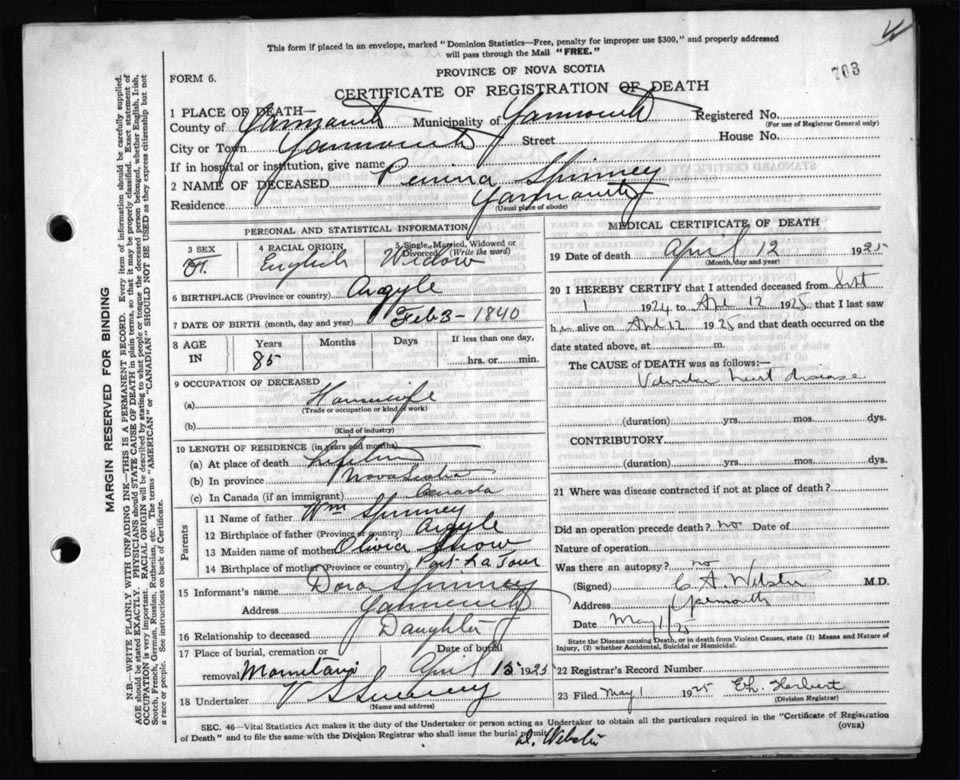 This form if placed in an envelope, marked "Dominion Statistics—Free, penalty for improper use $300," and properly addressed
will pass through the Mail "FREE."
703
PROVINCE OF NOVA SCOTIA
FORM 6.
CERTIFICATE OF REGISTRATION OF DEATH
1 PLACE OF DEATH—
County of Yarmouth Municipality of Yarmouth Registered No.
(For use of Registrar General only)
City or Town Yarmouth Street House No.
If in hospital or institution, give name
2 NAME OF DECEASED Penina Spinney
Residence Yarmouth
(Usual place of abode)
PERSONAL AND STATISTICAL INFORMATION
3 SEX
F.
4 RACIAL ORIGIN
English
5 Single, Married, Widowed or Divorced (Write the word)
Widow
6 BIRTHPLACE (Province or country) Argyle
7 DATE OF BIRTH (month, day and year) Feb 3 - 1840
8 AGE IN
Years Months Days If less than one day,
85 hrs. or min.
9 OCCUPATION OF DECEASED
(a) Housewife
(Trade or occupation or kind of work)
(b)
(Kind of industry)
10 LENGTH OF RESIDENCE (in years and months)
(a) At place of death Lifetime
(b) In province Nova Scotia
(c) In Canada (if an immigrant) Canada
Parents
11 Name of father Wm Spinney
12 Birthplace of father (Province or country) Argyle
13 Maiden name of mother Olivia Snow
14 Birthplace of mother (Province or country) Port La Tour
15 Informant's name Dora Spinney
Address Yarmouth
16 Relationship to deceased Daughter
17 Place of burial, cremation or removal Mountain Date of burial April 15 1925
18 Undertaker V S Sweeney
(Name and address)
MEDICAL CERTIFICATE OF DEATH
19 Date of death April 12 1925
(Month, day and year)
20 I HEREBY CERTIFY that I attended deceased from Sept
1 1924 to Apl 12 1925 that I last saw
her alive on Apl 12 1925 and that death occurred on the
date stated above, at m.
The CAUSE OF DEATH was as follows:—
Valvular heart disease
(duration) yrs. mos. dys.
CONTRIBUTORY
(duration) yrs. mos. dys.
21 Where was disease contracted if not at place of death?
Did an operation precede death? no Date of
Nature of operation
Was there an autopsy? no
(Signed) C A Webster M.D.
Address Yarmouth
Date May 1/25
State the Disease causing Death, or in death from Violent Causes, state (1) Means and Nature of
Injury, (2) whether Accidental, Suicidal or Homicidal.
22 Registrar's Record Number
23 Filed May 1 1925 E.h. Herbert
(Division Registrar)
SEC. 46—Vital Statistics Act makes it the duty of the Undertaker or person acting as Undertaker to obtain all the particulars required in the "Certificate of Registration
of Death" and to file the same with the Division Registrar who shall issue the burial permit. (OVER)
D. Webster
MARGIN RESERVED FOR BINDING
N.B.—WRITE PLAINLY WITH UNFADING INK—THIS IS A PERMANENT RECORD. Every item of information should be carefully supplied.
AGE should be stated EXACTLY. PHYSICIANS should STATE CAUSE OF DEATH in plain terms, so that it may be properly classified. Exact statement of
OCCUPATION is very important. RACIAL ORIGIN will be described by stating to what people or tongue the deceased person belonged, whether English, Irish,
Scotch, French, German, Russian, Ruthenian, etc. The terms "AMERICAN" or "CANADIAN" SHOULD NOT BE USED as they express citizenship but not
a race or people. See instructions on back of Certificate.